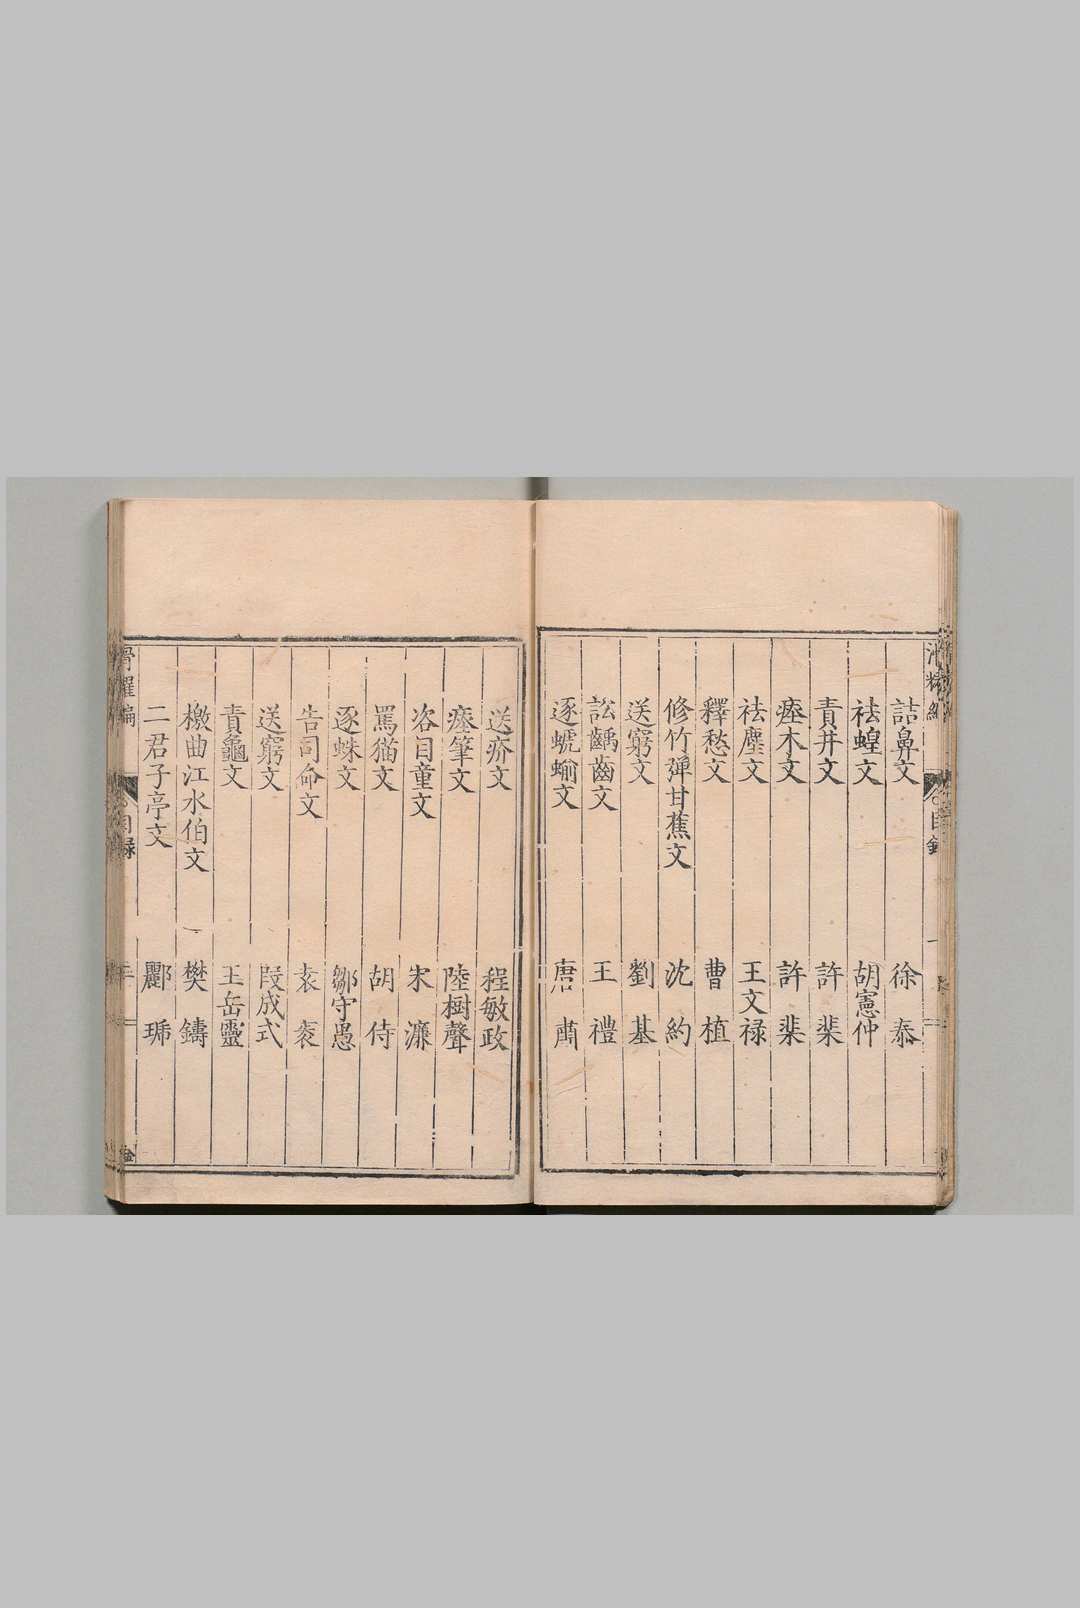 詰鼻文 徐泰
祛蝗文 胡憲仲
責井文 許棐
瘞木文 許棐
祛塵文 王文禄
釋愁文 曹植
修竹彈甘蕉文 沈約
送窮文 劉基
訟齲齒文 王禮
逐蠱蝓文 唐肅
送疥文 程敏政
瘞筆文 陸樹聲
咨目童文 宋濂
罵猫文 胡侍
逐蛛文 鄒守愚
告司命文 袁袠
送窮文 段成式
責龜文 王岳靈
檄曲江水伯文 樊鑄
二君子亭文 酈琥
目録